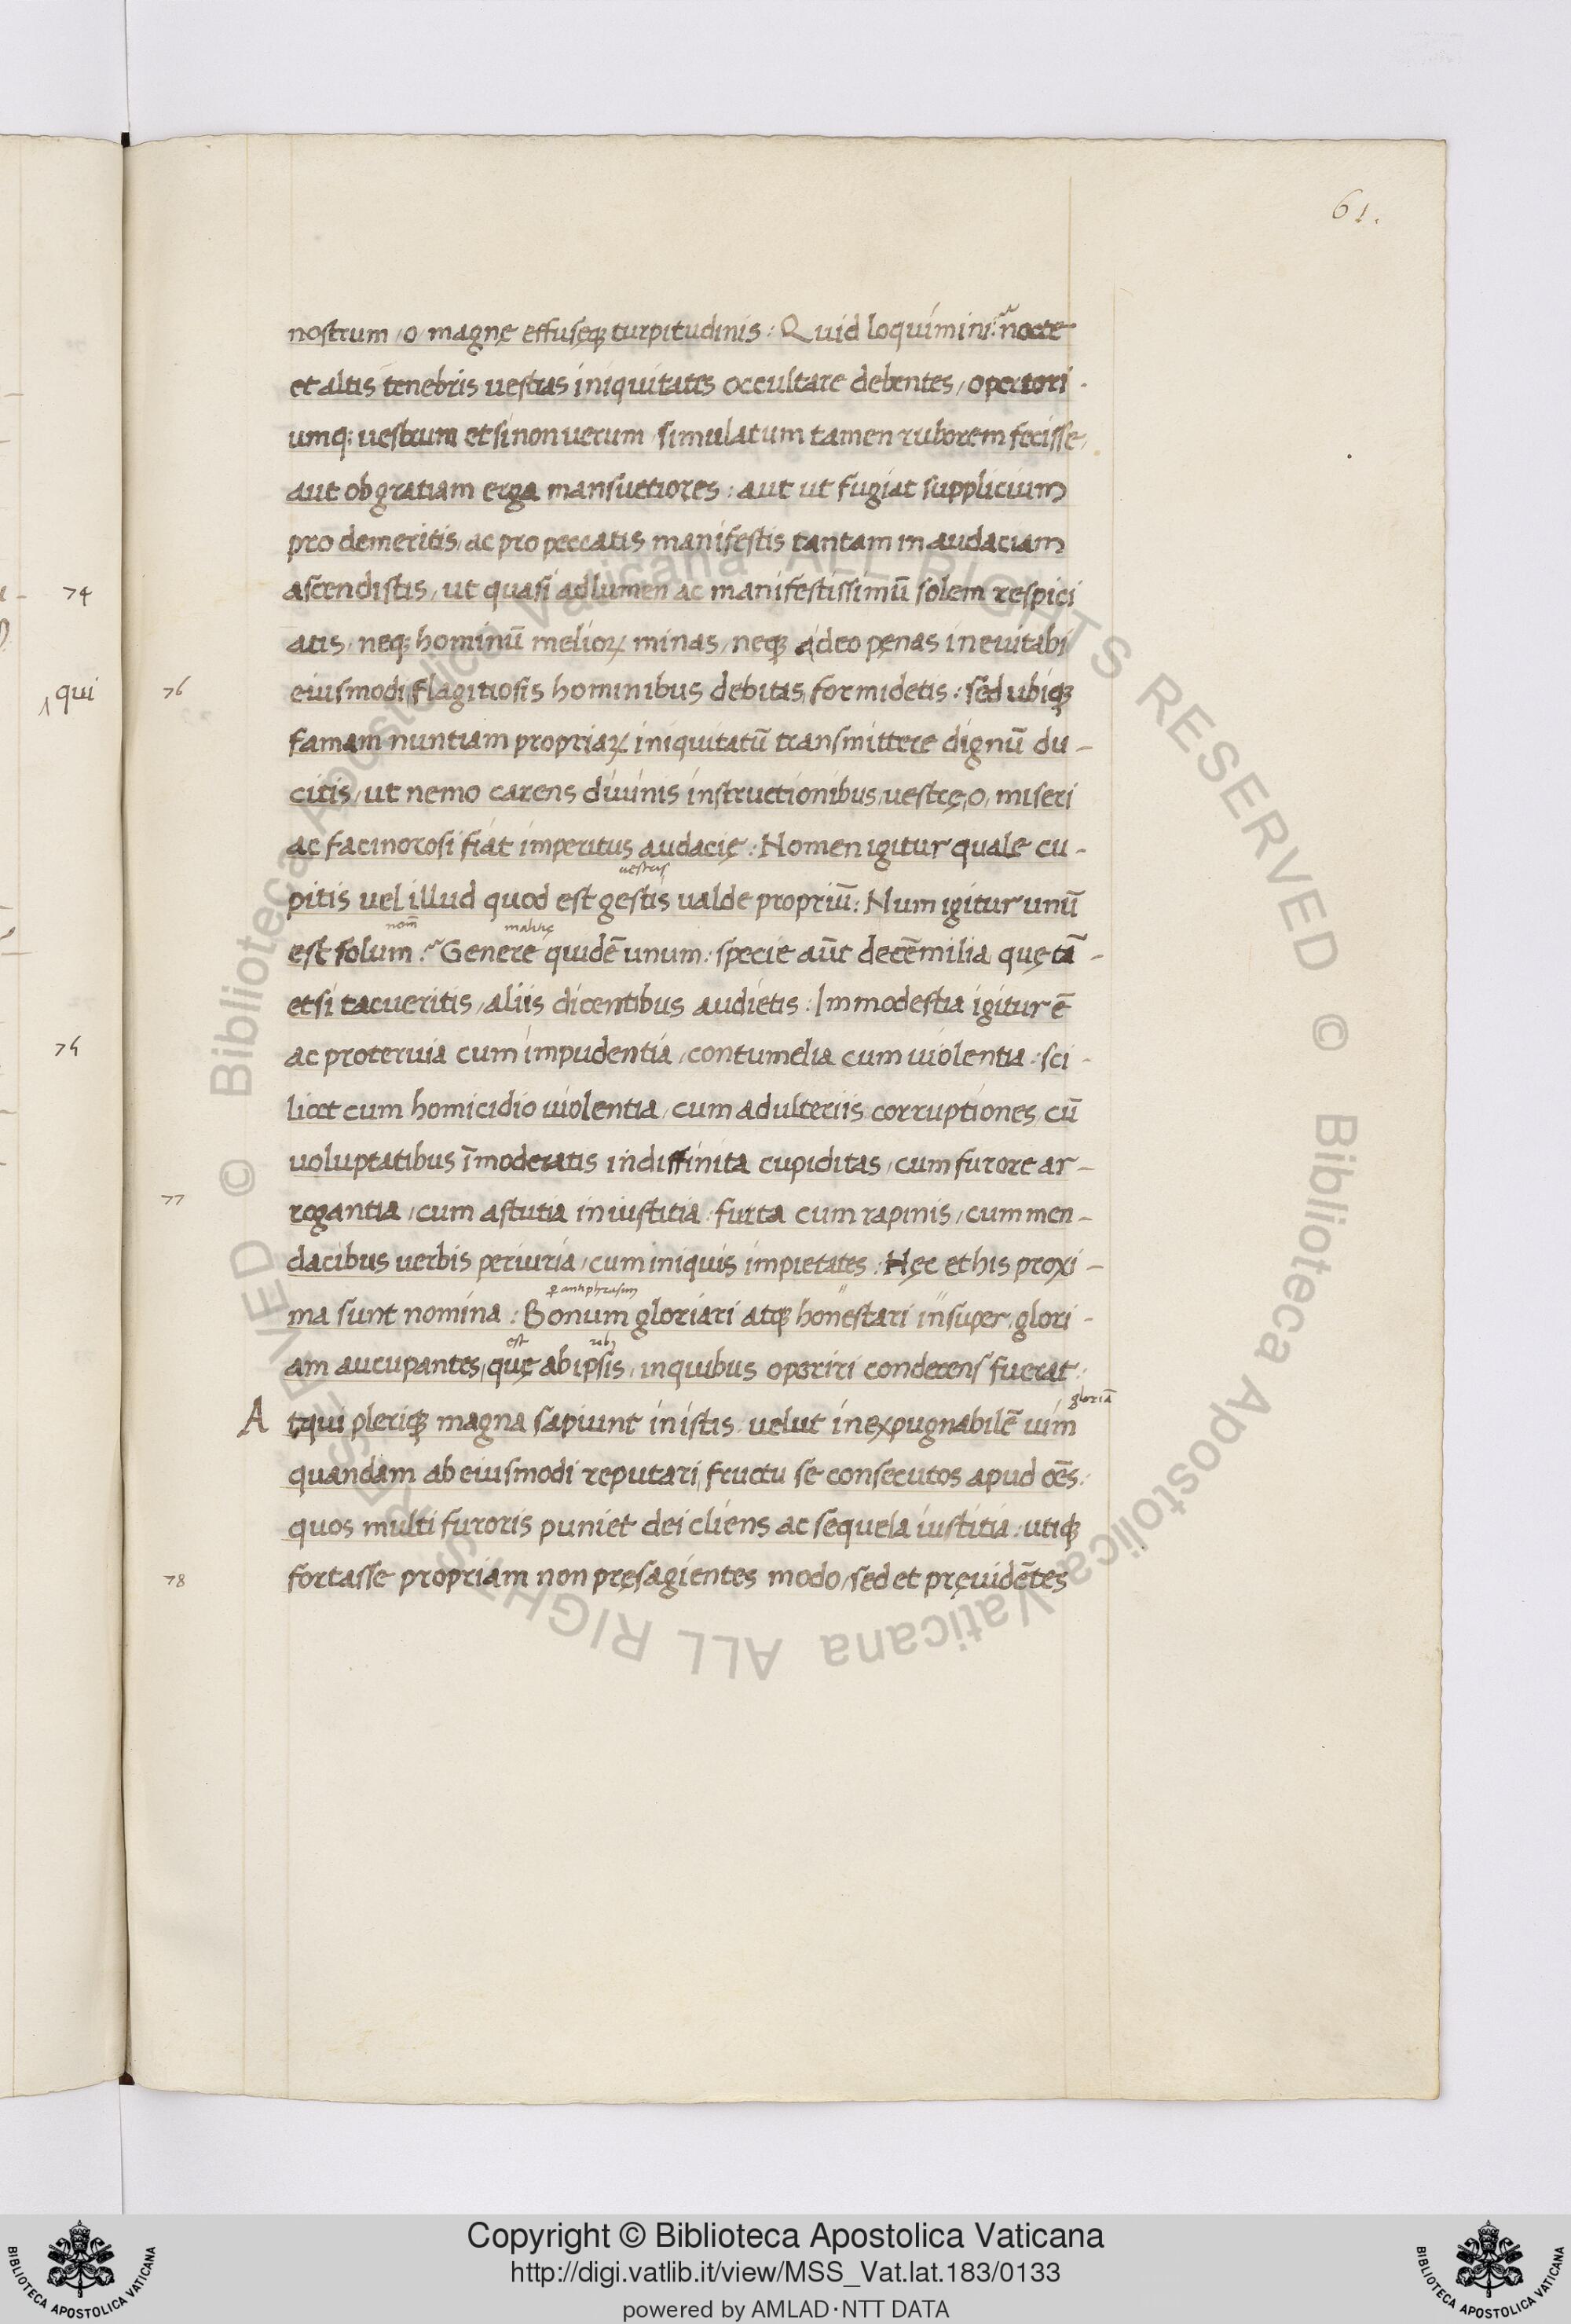 61.
nostrum / o / magnę effusęq; turpitudinis : Quid loquimini? nocte
et altis tenebris uestras iniquitates occultare debentes / opertori -
umq; uestrum et si non uerum / simulatum tamen ruborem fecisse /
aut ob gratiam erga mansuetiores : aut ut fugiat supplicium
pro demeritis / ac pro peccatis manifestis tantam in audaciam
74
ascendistis / ut quasi ad lumen ac manifestissimū solem respici
atis / neq; hominū melioꝝ minas / neq; a deo pęnas ineuitabi
qui
76
eiusmodi flagitiosis hominibus debitas formidetis : sed ubiq;
famam nuntiam propriaꝝ iniquitatū transmittere dignū du -
citis / ut nemo carens diuinis instructionibus / uestrę / o / miseri
ac facinorosi fiat imperitus audacię : Nomen igitur quale cu -
uestris
pitis uel illud quod est gestis ualde propriū : Num igitur unū
nom̄ malitię
est solum ? Genere quidē unum : specie aūt decēmilia quę tā -
etsi tacueritis / aliis dicentibus audietis : Immodestia igitur ē
75
ac proteruia cum impudentia / contumelia cum uiolentia : sci -
licet cum homicidio uiolentia / cum adulteriis corruptiones cū
uoluptatibus īmoderatis indiffinita cupiditas / cum furore ar -
77
rogantia / cum astutia iniustitia : furta cum rapinis / cum men -
dacibus uerbis periuria / cum iniquis impietates : Hęc et his proxi -
ꝑ antiphrasim
ma sunt nomina : Bonum gloriari atq; honestari insuper / glori -
est reb;
am aucupantes / quę ab ipsis / in quibus operiri condecens fuerat :
gloriā
Atqui pleriq; magna sapiunt in istis uelut inexpugnabilē uim
quandam ab eiusmodi reputari / fructu se consecutos apud oēs :
quos multi furoris puniet dei cliens ac sequela iustitia : utiq;
78
fortasse propriam non pręsagientes modo / sed et pręuidētes
© Biblioteca Apostolica Vaticana ALL RIGHTS RESERVED © Biblioteca Apostolica Vaticana ALL RIGHTS RESERVED
Copyright © Biblioteca Apostolica Vaticana
http://digi.vatlib.it/view/MSS_Vat.lat.183/0133
powered by AMLAD·NTT DATA
BIBLIOTECA APOSTOLICA VATICANA
BIBLIOTECA APOSTOLICA VATICANA